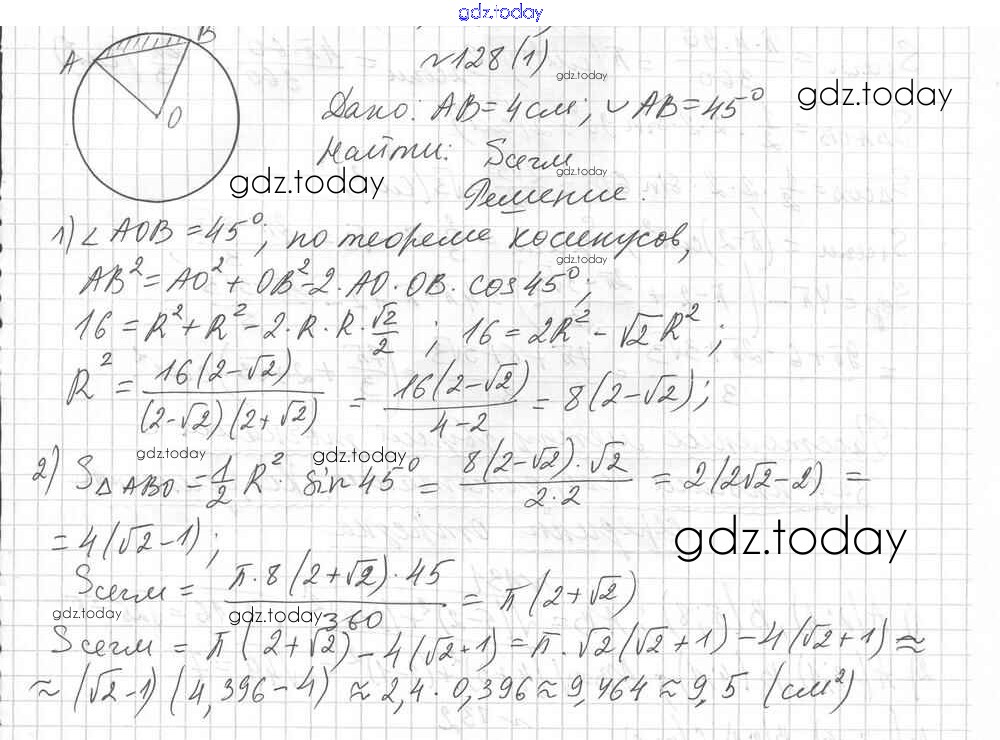 gdz.today
№128(1)
gdz.today
A B O
Дано: AB=4см; ◡AB=45°
gdz.today
Найти: Sсегм
gdz.today
gdz.today
Решение.
1) ∠AOB=45°; по теореме косинусов,
gdz.today
AB²=AO²+OB²-2·AO·OB·cos45°;
16=R²+R²-2·R·R·√2/2; 16=2R²-√2R²;
R²=16(2-√2)/(2-√2)(2+√2)=16(2-√2)/4-2=8(2-√2);
gdz.today gdz.today
2) S△ABO=1/2R²·sin45°=8(2-√2)·√2/2·2=2(2√2-2)=
gdz.today
=4(√2-1);
Sсегм=π·8(2+√2)·45/360=π(2+√2)
gdz.today gdz.today
Sсегм=π(2+√2)-4(√2+1)=π·√2(√2+1)-4(√2+1)≈
≈(√2-1)(4,396-4)≈2,4·0,396≈9,464≈9,5 (см²)